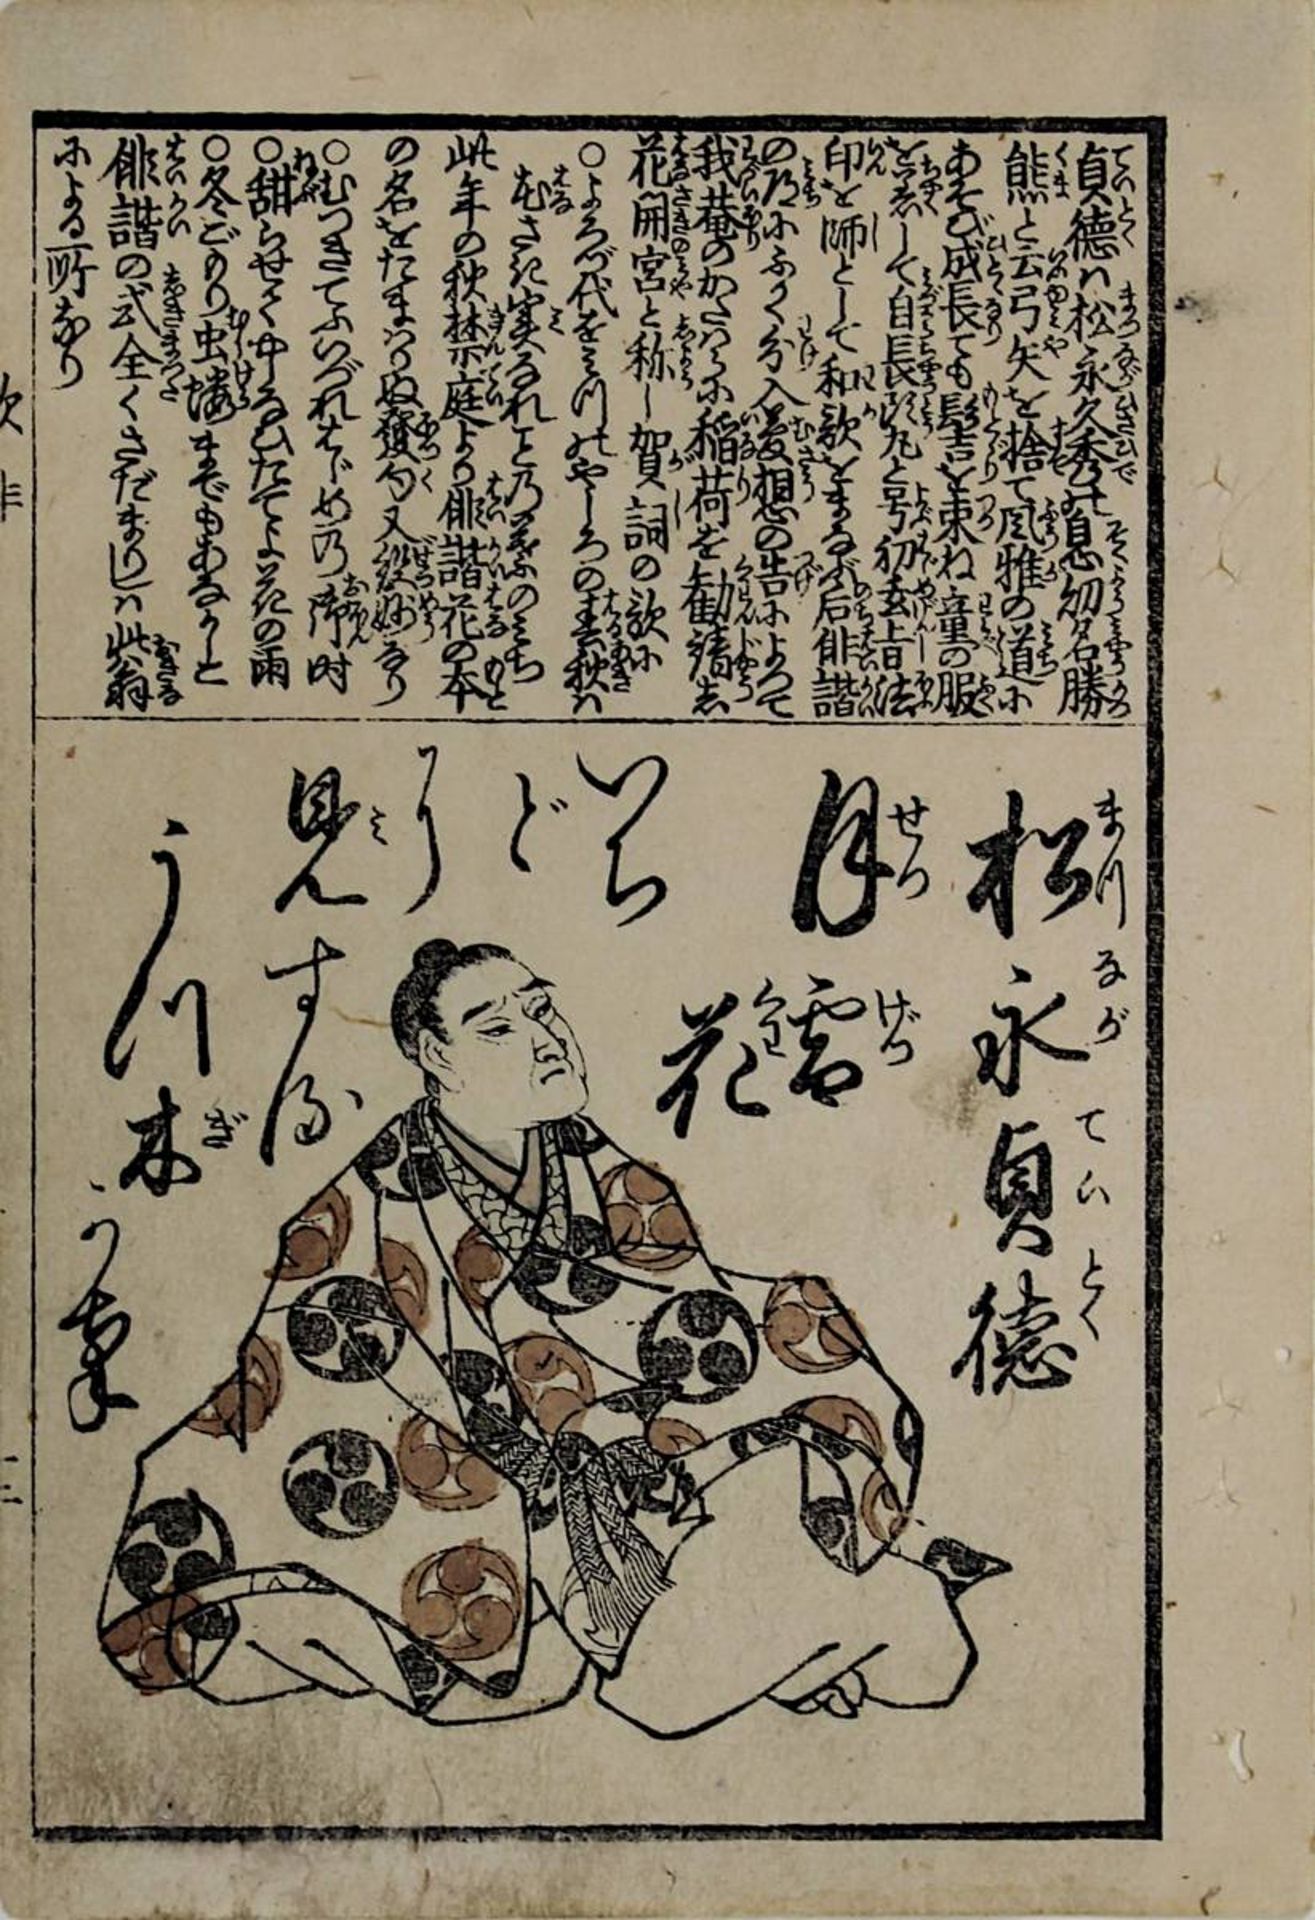 貞徳は松永久秀の息幼名勝
熊と云弓矢を捨て風雅の道に
あそび成長ても髻を束ね童の服
をあして自長頭丸と号初玄旨法
印を師として和歌をまなぶ后俳諧
の道にふかく分入夢想の告によつて
我菴のかたはらに稲荷を勧請し
花開宮と称し賀詞の歌に
○よろづ代を みつのやしろの春秋は
花さき実なれことの葉のみち
此年の秋禁庭より俳諧花の本
の名をたまはりぬ發句又絶妙なり
○むつきてふいづれはじめの御時
○甜らせて やしなひたてよ花の雨
○冬ごもり虫螻までもあなかしこ
俳諧の式全くさだまりしは此翁
による所なり
松永貞徳
まつながていとく
月雪花
せつげつくわ
いち
ど
に
見する
うつ木
かな